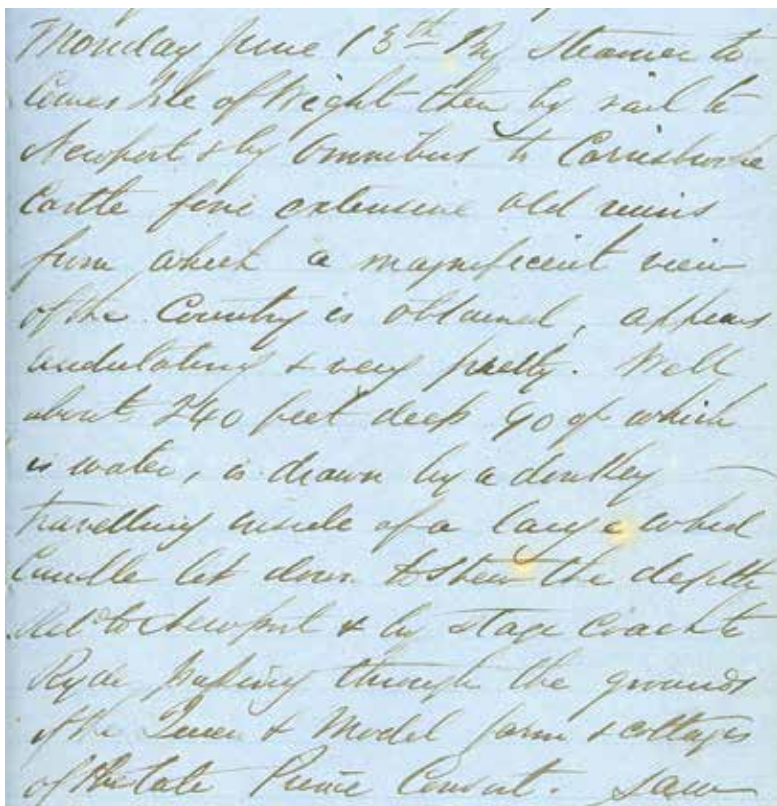 Monday June 13th By Steamer to
Cowes Isle of Wight then by rail to
Newport & by Omnibus to Carisbrooke
Castle fine extensive old ruins
from which a magnificent view
of the Country is obtained, appears
undulating & very pretty. Well
about 240 feet deep 90 of which
is water, is drawn by a donkey
travelling inside of a large wheel
Candle let down to shew the depth
Retd to Newport & by stage Coach to
Ryde, passing through the grounds
of the Queen & Model farm & cottages
of the late Prince Consort. Saw